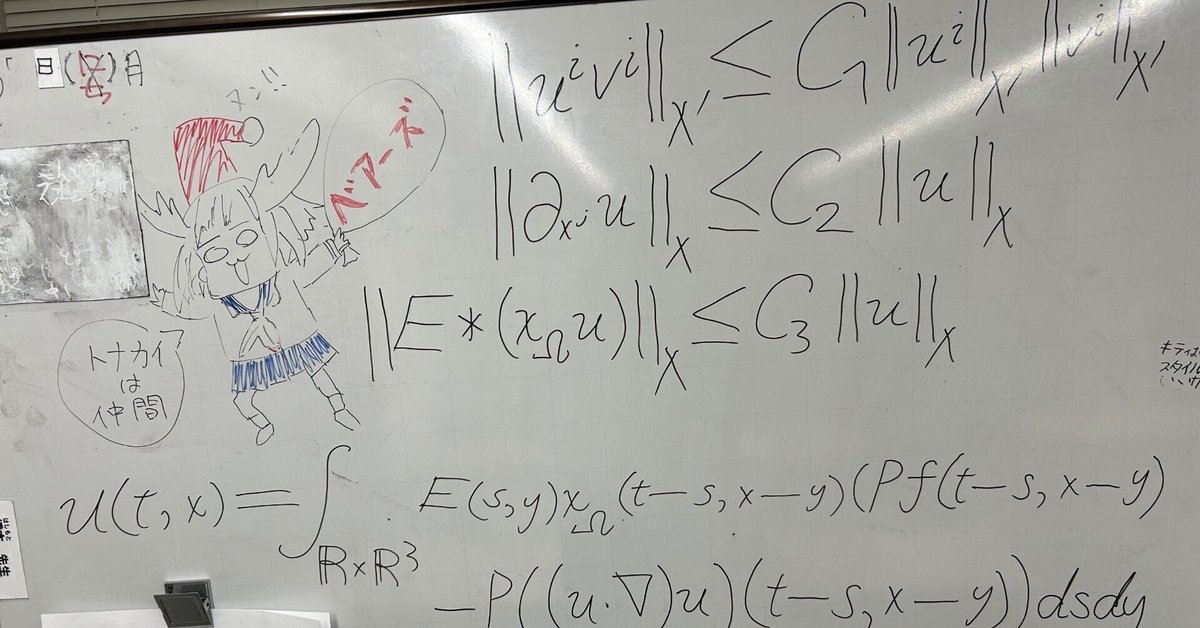 日( )日
ヌン!!
ベアーズ
トナカイ
は
仲間
‖uʲvʲ‖_X' ≤ C₁‖uʲ‖_X' ‖vʲ‖_X'
‖∂_xʲ u‖_X ≤ C₂ ‖u‖_X
‖E*(χ_Ω u)‖_X ≤ C₃ ‖u‖_X
キティは
スタイル
u(t, x) = ∫_{ℝ×ℝ³} E(s, y)χ_Ω(t−s, x−y)(Pf(t−s, x−y)
−P((u·∇)u)(t−s, x−y))dsdy
先生